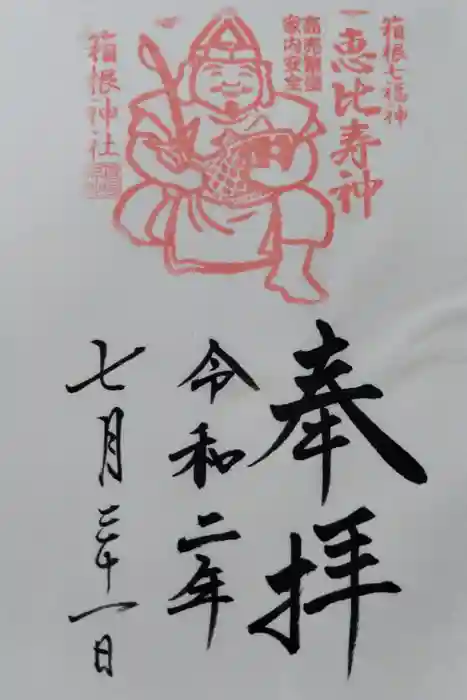 箱根七福神
恵比寿神
商売繁盛
家内安全
箱根神社
奉拝
令和二年
七月三十一日